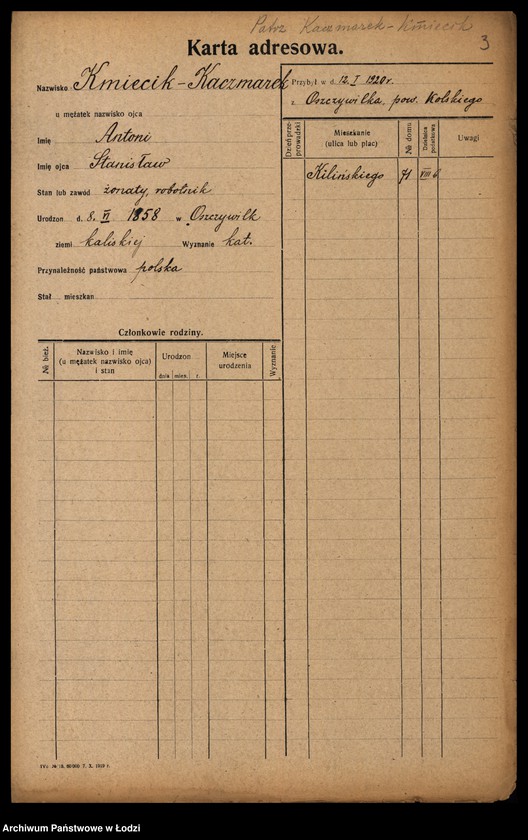 Patrz Kaczmarek-Kmiecik
3
Karta adresowa.
Nazwisko Kmiecik-Kaczmarek
u mężatek nazwisko ojca
Imię Antoni
Imię ojca Stanisław
Stan lub zawód żonaty, robotnik
Urodzon d. 8. VI 1858 w Oszczywilk
ziemi kaliskiej Wyznanie kat.
Przynależność państwowa polska
Stał mieszkan
Przybył w d. 12. I 1920 r.
z Oszczywilka, pow. Kolskiego
Dzień przeprowadzki
Mieszkanie
(ulica lub plac)
№ domu
Dzielnica podatkowa
Uwagi
Kilińskiego 71 VIII b
Członkowie rodziny.
№ bież.
Nazwisko i imię
(u mężatek nazwisko ojca)
i stan
Urodzon
dnia mies. r.
Miejsce
urodzenia
Wyznanie
7. X. 1919 r.
Archiwum Państwowe w Łodzi